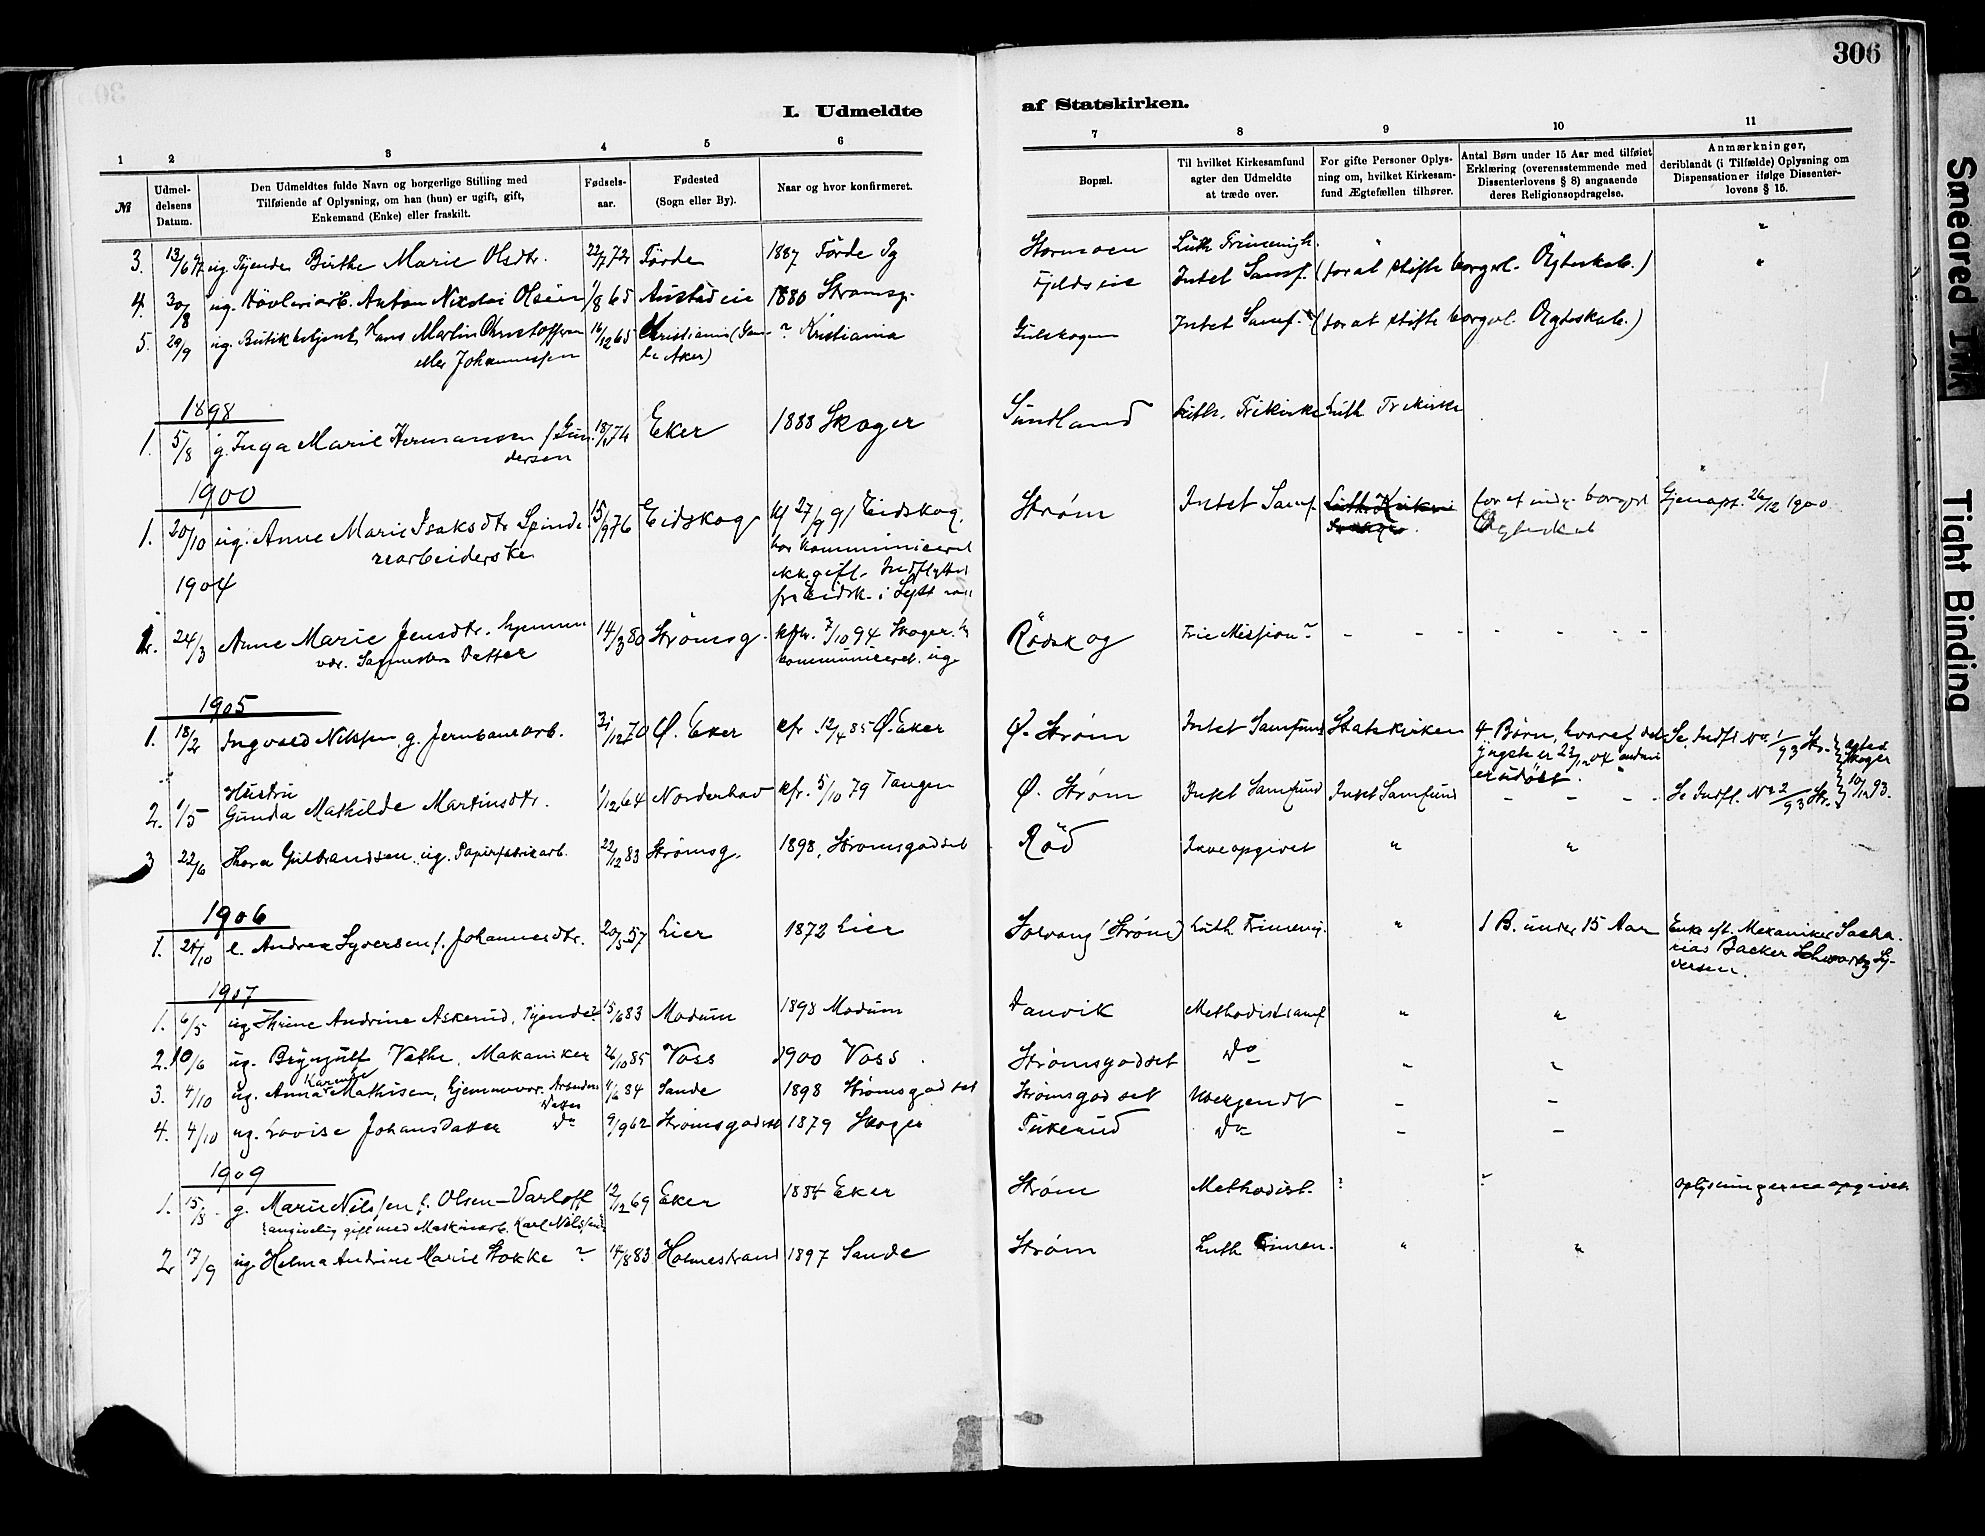 306
I. Udmeldte af Statskirken.
1 2 3 4 5 6 7 8 9 10 11
№
Udmel-
delsens
Datum.
Den Udmeldtes fulde Navn og borgerlige Stilling med
Tilføiende af Oplysning, om han (hun) er ugift, gift,
Enkemand (Enke) eller fraskilt.
Fødsels-
aar.
Fødested
(Sogn eller By).
Naar og hvor konfirmeret.
Bopæl.
Til hvilket Kirkesamfund
agter den Udmeldte
at træde over.
For gifte Personer Oplys-
ning om, hvilket Kirkesam-
fund Ægtefællen tilhører.
Antal Børn under 15 Aar med tilføiet
Erklæring (overensstemmende med
Dissenterlovens § 8) angaaende
deres Religionsopdragelse.
Anmærkninger,
deriblandt (i Tilfælde) Oplysning om
Dispensationer ifølge Dissenter-
lovens § 15.
3. 13/6 97 ug. Tjende Birthe Marie Olsdtr. 22/7 72 Förde 1887 Förde Pg Stormoen Luth Frimenigh. "
4. 30/8 ug. Høvleriarb. Anton Nikolai Olsen 1/8 65 Austadeie 1880 Stromsg. Fjeldseie Intet Samf. (for at stifte borgerl. Ögteskab.) "
5. 29/9 ug. Butikbetjent Hans Martin Christoffersen 16/12 65 Christiania (Gam- ? Kristiania Gulskogen Intet Samf. (for at stifte borgerl. Ögteskab.)
eller Johannessen le Aker)
1898
1. 5/8 g. Inga Marie Hermansen f. Gun- 18/1 74 Eker 1888 Skoger Sundland Luth. Frikirke Luth Frikirke
dersen
1900
1. 20/10 ug. Anne Marie Isaksdtr Spinde 15/9 76 Eidskog kf 27/9 91 Eidskog. Strøm Intet Samf. Luth. Kirken for at indg. borgerl Gjenopt. 26/12 1900
rearbeiderske har kommuniceret Ægteskab
ikke gift. Indflyttet
fra Eidsk. i Sept
1904
1. 24/3 Anne Marie Jensdtr. hjemme 14/3 80 Strømsg. kfir. 7/10 94 Skoger. Rödskog Frie Mission - - - - - - -
vær. Datter kommuniceret. ug.
1905
1. 18/2 Ingvald Nilssen g. Jernbanearb. 31/12 70 Ø. Eker kfr. 12/4 85 Ø. Eker Ø. Strøm Intet Samfund Statskirken 4 Børn, hvoraf det Se Indfl. No 1/93 Str.
yngste er 23/12 04 anden
er udöbt. Skoger
2. 1/5 Hustru
Gunda Mathilde Martinsdtr. 1/12 64 Norderhov kfr. 5/10 79 Tangen Ø. Strøm Intet Samfund Intet Samfund - - - - Se Indfl. No 2/93 Str. 10/12 93.
3 22/6 Thora Gulbrandsen, ug. Papirfabrikarb. 22/12 83 Strømsg. 1898, Stromsgodset Röd Ikke opgivet " "
1906
1. 24/10 e. Andrea Syversen f. Johannesdtr. 20/5 57 Lier 1872 Lier Solvang (Strøm) Luth Frimenig. " 1 B. under 15 Aar Enke eft. Mekaniker Sacha-
rias Backer Schwartz Sy-
versen.
1907
1. 6/5 ug. Thrine Andrine Askerud, Tjende 15/6 83 Modum 1898 Modum Danvik Methodistsamf " "
2. 10/6 ug. Brynjulf Vethe, Mekaniker 26/10 85 Voss 1900 Voss. Strømsgodset Do " "
3. 4/10 ug. Anna Karense Mathisen, Hjemmevær. Arbeiders 4/6 84 Sande 1898 Strømsgodset Strømsgodset Uvergendt - -
Datter
4. 4/10 ug. Lovise Johansdatter Do 9/9 62 Strømsgodset 1879 Skoger Do - -
1909
1. 15/3 g. Marie Nilssen f. Olsen-Varloff 12/12 69 Eker 1884 Eker Strøm Methodist. ? ? Oplysninger ei opgivet
(angivelig gift med Maskinarb. Karl Nilssen)
2 17/9 ug. Helma Andrine Marie Stokke ? 14/8 83 Holmestrand 1897 Sande Strøm Luth Frimen. " "
Smeared Ink
Tight Binding